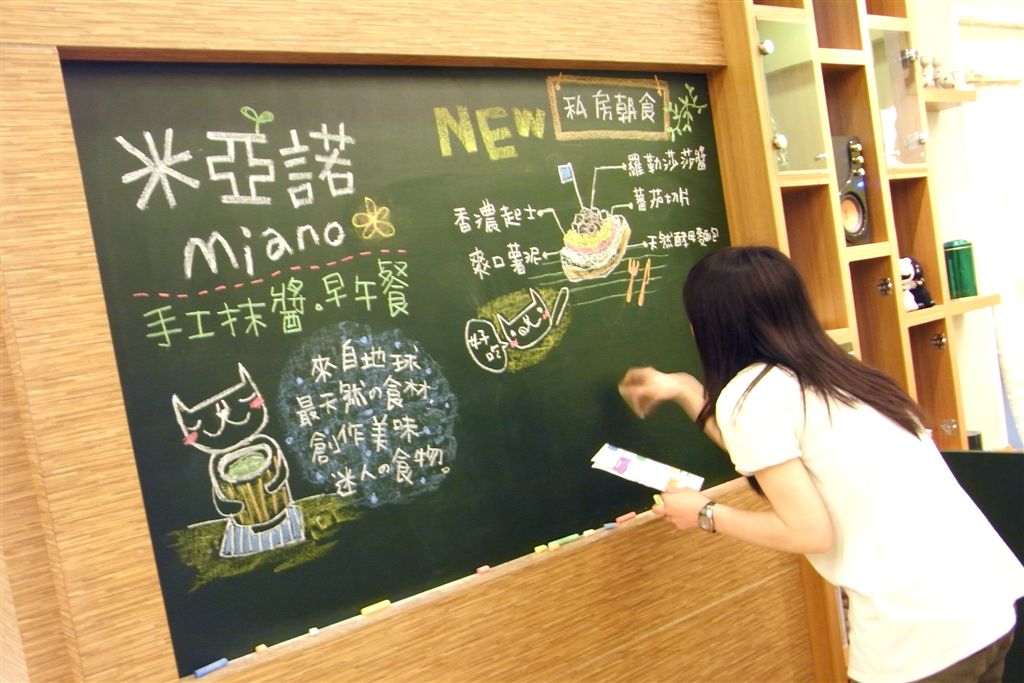 米亞諾
miano
手工抹醬.早午餐
來自地球
最天然の食材
創作美味
迷人の食物。
NEW
私房朝食
羅勒莎莎醬
蕃茄切片
天然酵母麵包
香濃起士
爽口薯泥
好吃